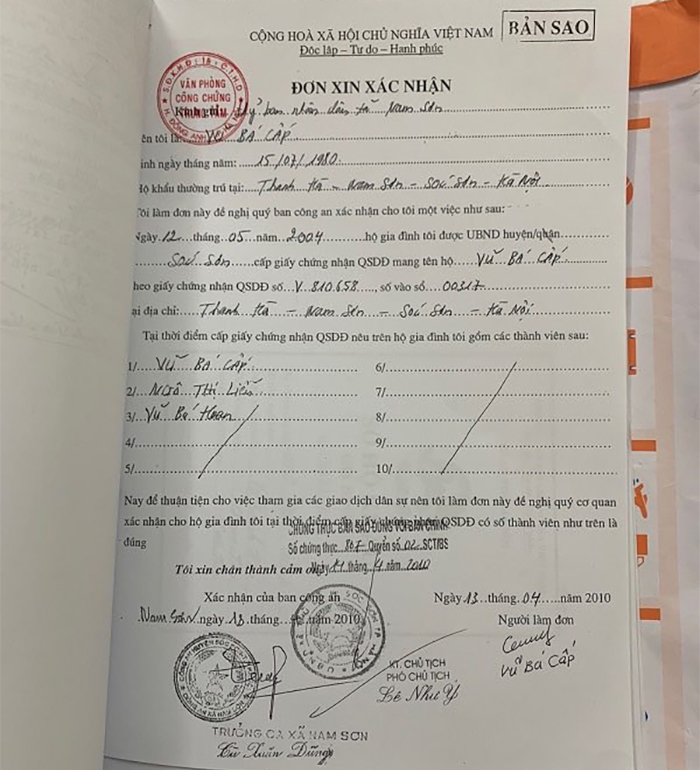 CỘNG HOÀ XÃ HỘI CHỦ NGHĨA VIỆT NAM
BẢN SAO
Độc lập – Tự do – Hạnh phúc
ĐƠN XIN XÁC NHẬN
VĂN PHÒNG
CÔNG CHỨNG
Kính gửi: Uỷ ban nhân dân xã Nam Sơn
ên tôi là: VŨ BÁ CẤP
inh ngày tháng năm: 15/07/1980
Hộ khẩu thường trú tại: Thanh Hà – Nam Sơn – Sóc Sơn – Hà Nội
Tôi làm đơn này đề nghị quý ban công an xác nhận cho tôi một việc như sau:
Ngày 12 tháng 05 năm 2004 hộ gia đình tôi được UBND huyện/quận
Sóc Sơn cấp giấy chứng nhận QSDĐ mang tên hộ VŨ BÁ CẤP
heo giấy chứng nhận QSDĐ số V 810658, số vào sổ 00317
ại địa chỉ: Thanh Hà – Nam Sơn – Sóc Sơn – Hà Nội
Tại thời điểm cấp giấy chứng nhận QSDĐ nêu trên hộ gia đình tôi gồm các thành viên sau:
1/ VŨ BÁ CẤP 6/
2/ NGÔ THỊ LIỄU 7/
3/ Vũ Bá Hoan 8/
4/ 9/
5/ 10/
Nay để thuận tiện cho việc tham gia các giao dịch dân sự nên tôi làm đơn này đề nghị quý cơ quan
xác nhận cho hộ gia đình tôi tại thời điểm cấp giấy chứng nhận QSDĐ có số thành viên như trên là
đúng
CHỨNG THỰC BẢN SAO ĐÚNG VỚI BẢN CHÍNH
Số chứng thực 867 Quyển số 02 SCT/BS
Tôi xin chân thành cảm ơn
Ngày 14 tháng 4 năm 2010
Xác nhận của ban công an
Ngày 13 tháng 04 năm 2010
Nam Sơn ngày 13 tháng năm 2010
Người làm đơn
VŨ BÁ CẤP
KT. CHỦ TỊCH
PHÓ CHỦ TỊCH
Lê Như Ý
TRƯỞNG CA XÃ NAM SƠN
Cù Xuân Dũng